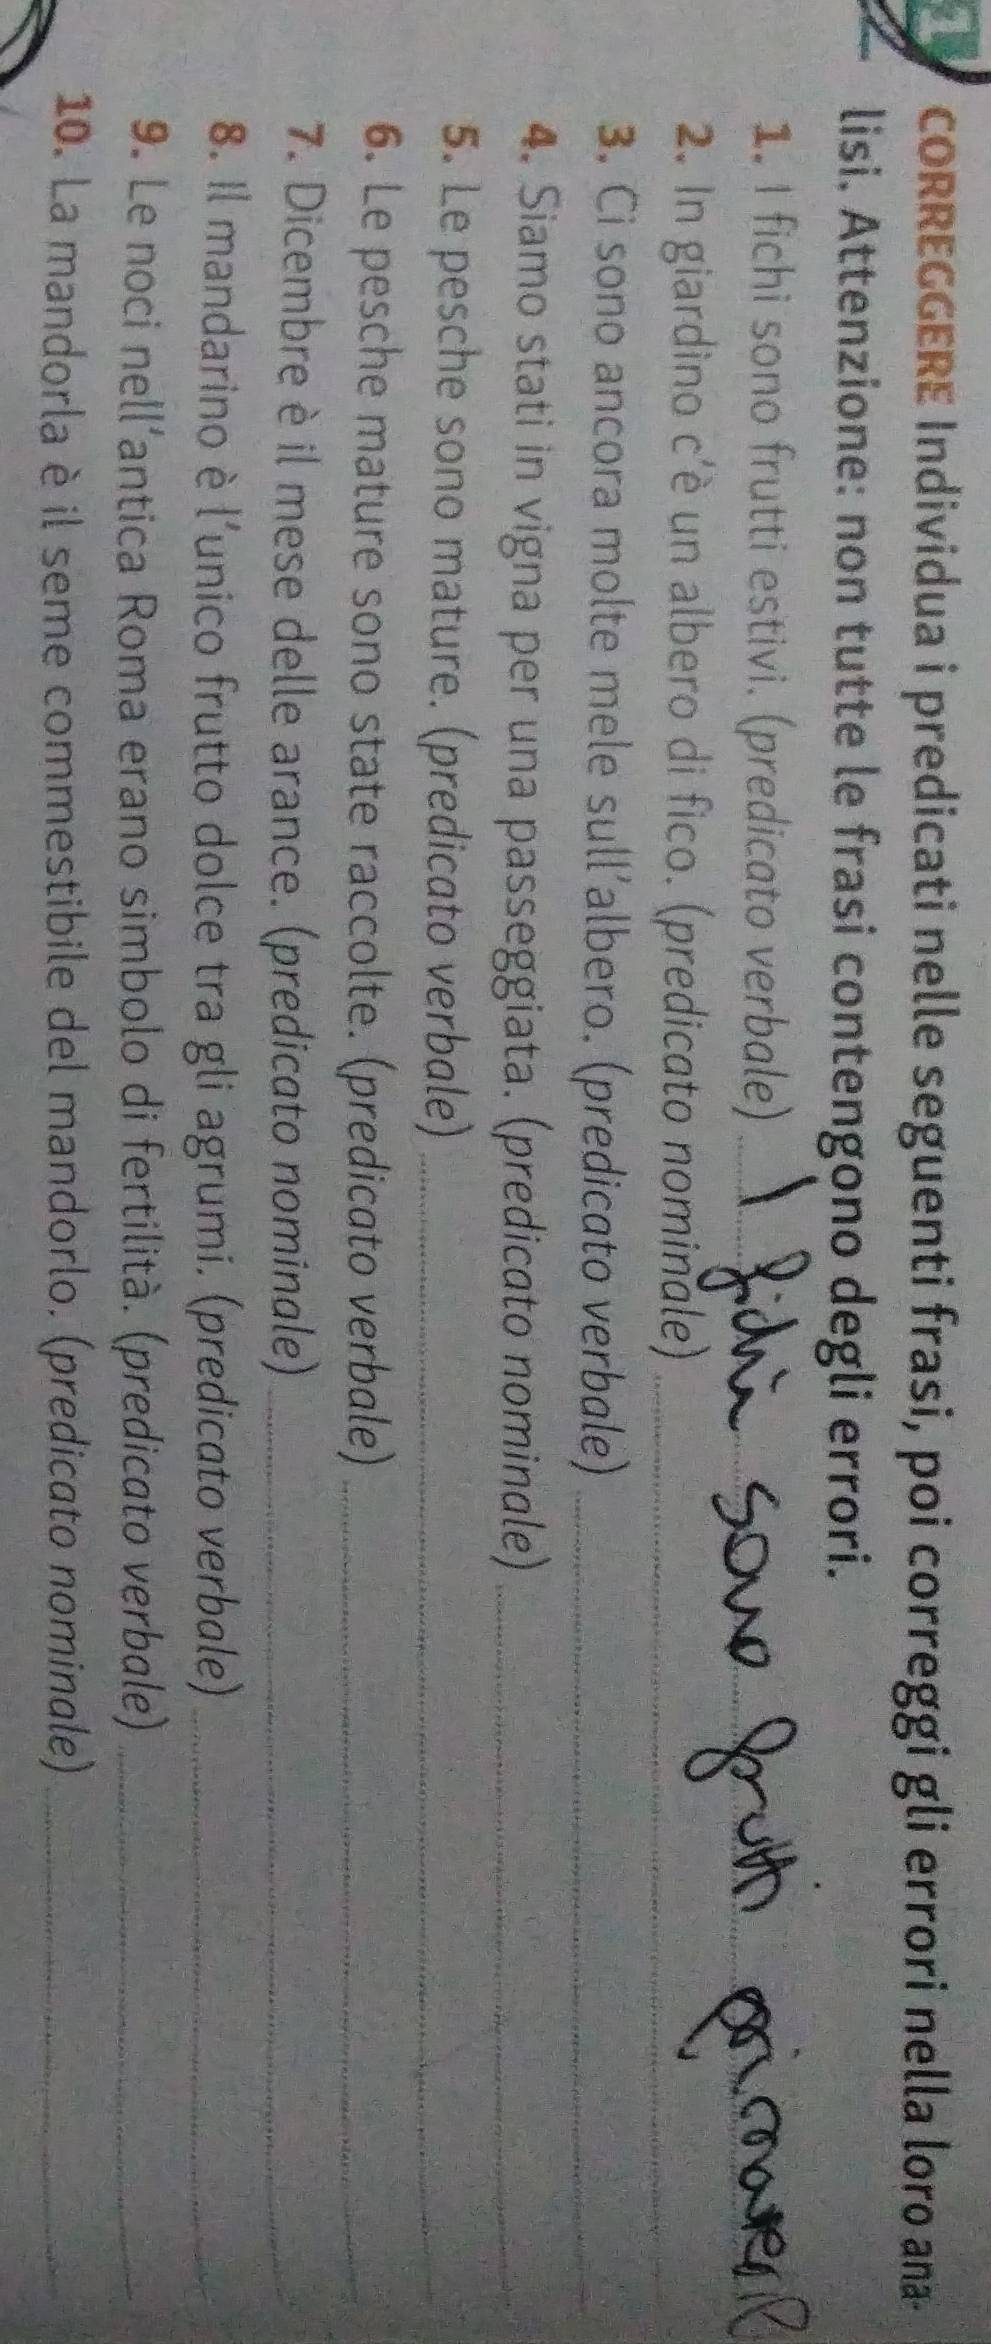 1
CORREGGERE Individua i predicati nelle seguenti frasi, poi correggi gli errori nella loro ana-
lisi. Attenzione: non tutte le frasi contengono degli errori.
1. I fichi sono frutti estivi. (predicato verbale) I fichi sono frutti
2. In giardino c'è un albero di fico. (predicato nominale)
3. Ci sono ancora molte mele sull'albero. (predicato verbale)
4. Siamo stati in vigna per una passeggiata. (predicato nominale)
5. Le pesche sono mature. (predicato verbale)
6. Le pesche mature sono state raccolte. (predicato verbale)
7. Dicembre è il mese delle arance. (predicato nominale)
8. Il mandarino è l'unico frutto dolce tra gli agrumi. (predicato verbale)
9. Le noci nell'antica Roma erano simbolo di fertilità. (predicato verbale)
10. La mandorla è il seme commestibile del mandorlo. (predicato nominale)